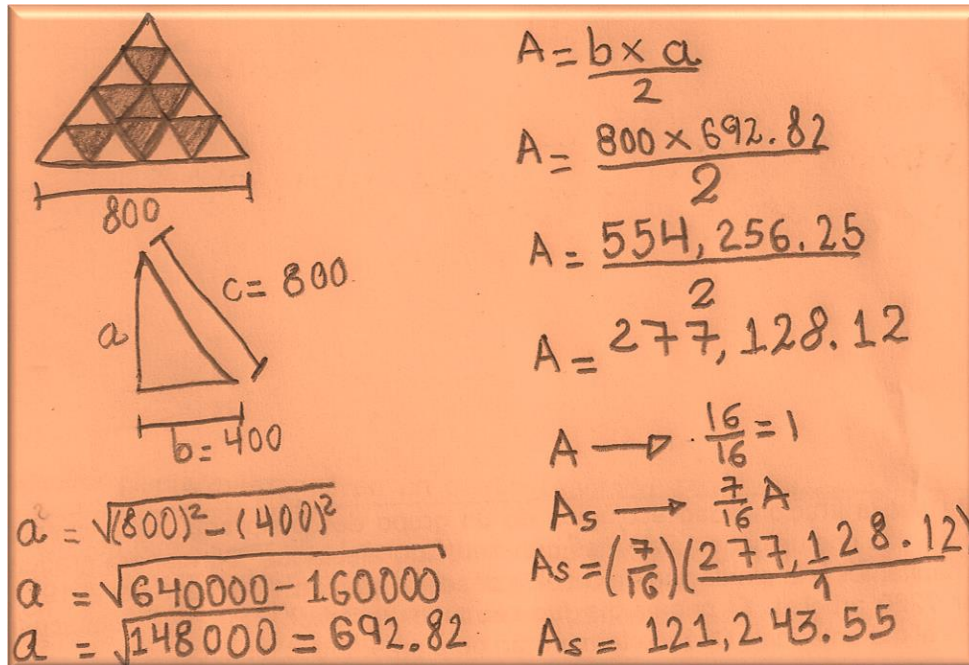 800
c = 800
a
b = 400
a² = √(800)² - (400)²
a = √640000 - 160000
a = √148000 = 692.82
A = b x a / 2
A = 800 x 692.82 / 2
A = 554,256.25 / 2
A = 277,128.12
A → 16/16 = 1
As → 7/16 A
As = (7/16)(277,128.12/1)
As = 121,243.55